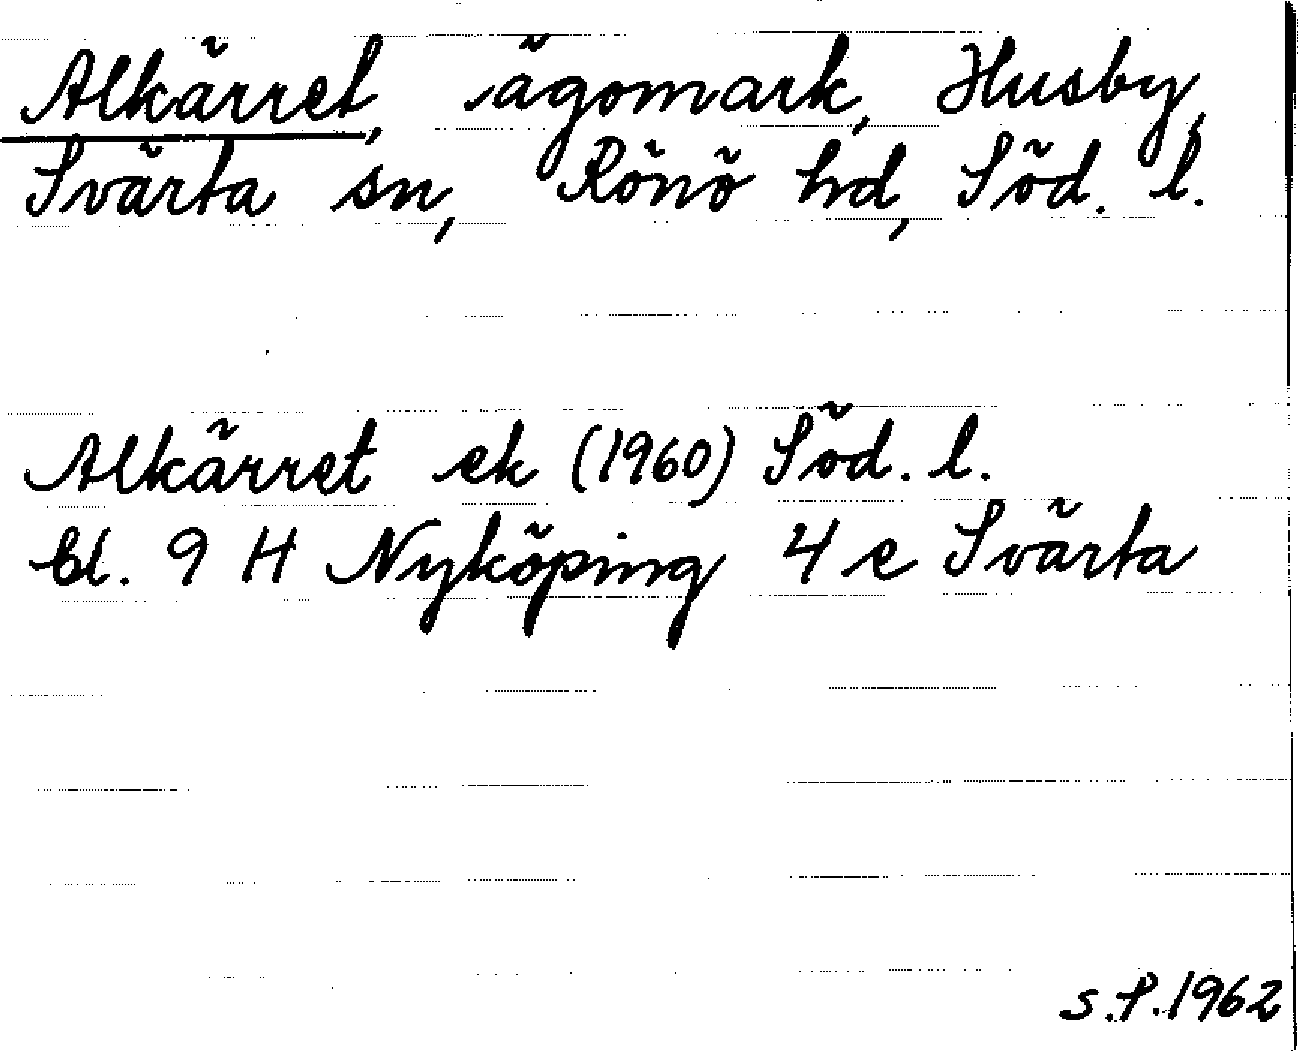 Alkärret, ägomark, Husby,
Svärta sn, Rönö hd, Söd. l.
Alkärret ek (1960) Söd. l.
bl. 9 H Nyköping 4 e Svärta
s.P.1962